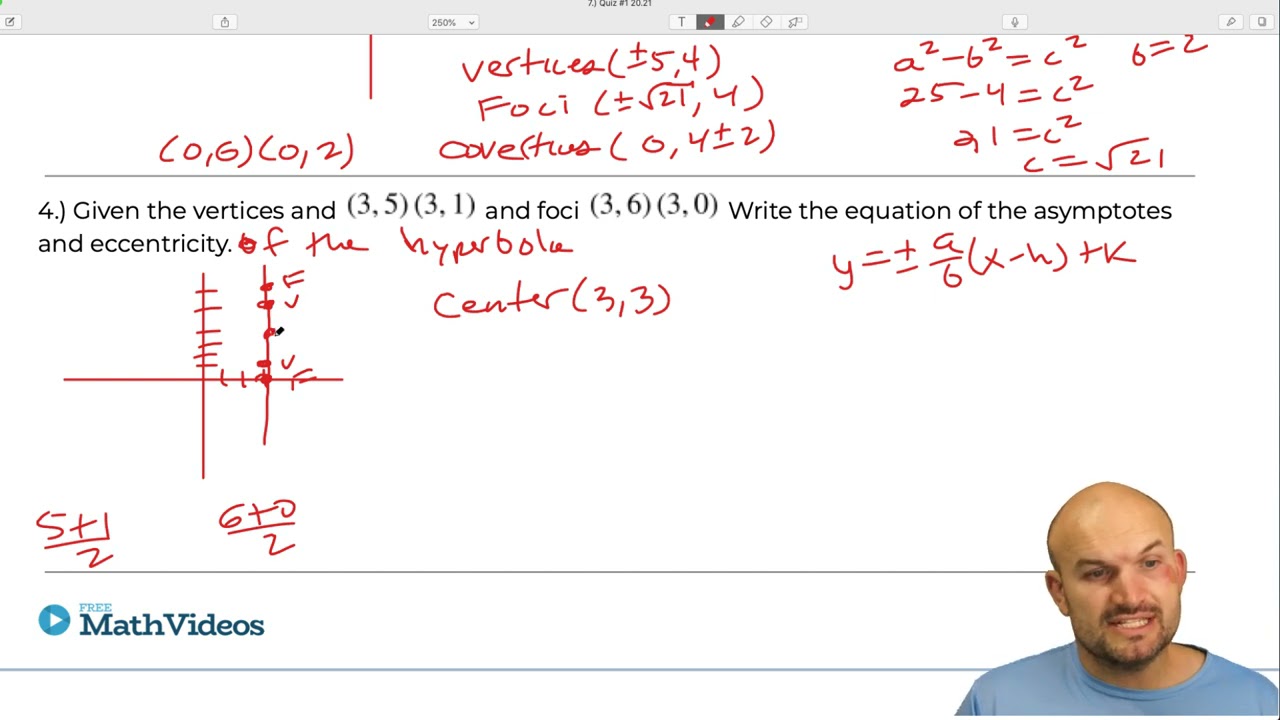 7.) Quiz #1 20.21
250%
T
vertices (±5, 4)
a² - b² = c²
b = 2
Foci (±√21, 4)
25 - 4 = c²
(0,6) (0,2)
covertices (0, 4±2)
21 = c²
c = √21
4.) Given the vertices and (3, 5) (3, 1) and foci (3, 6) (3, 0) Write the equation of the asymptotes
and eccentricity. of the hyperbola
y = ± a/b (x-h) + k
F
V
Center (3, 3)
V
F
5+1/2
6+0/2
FREE
MathVideos